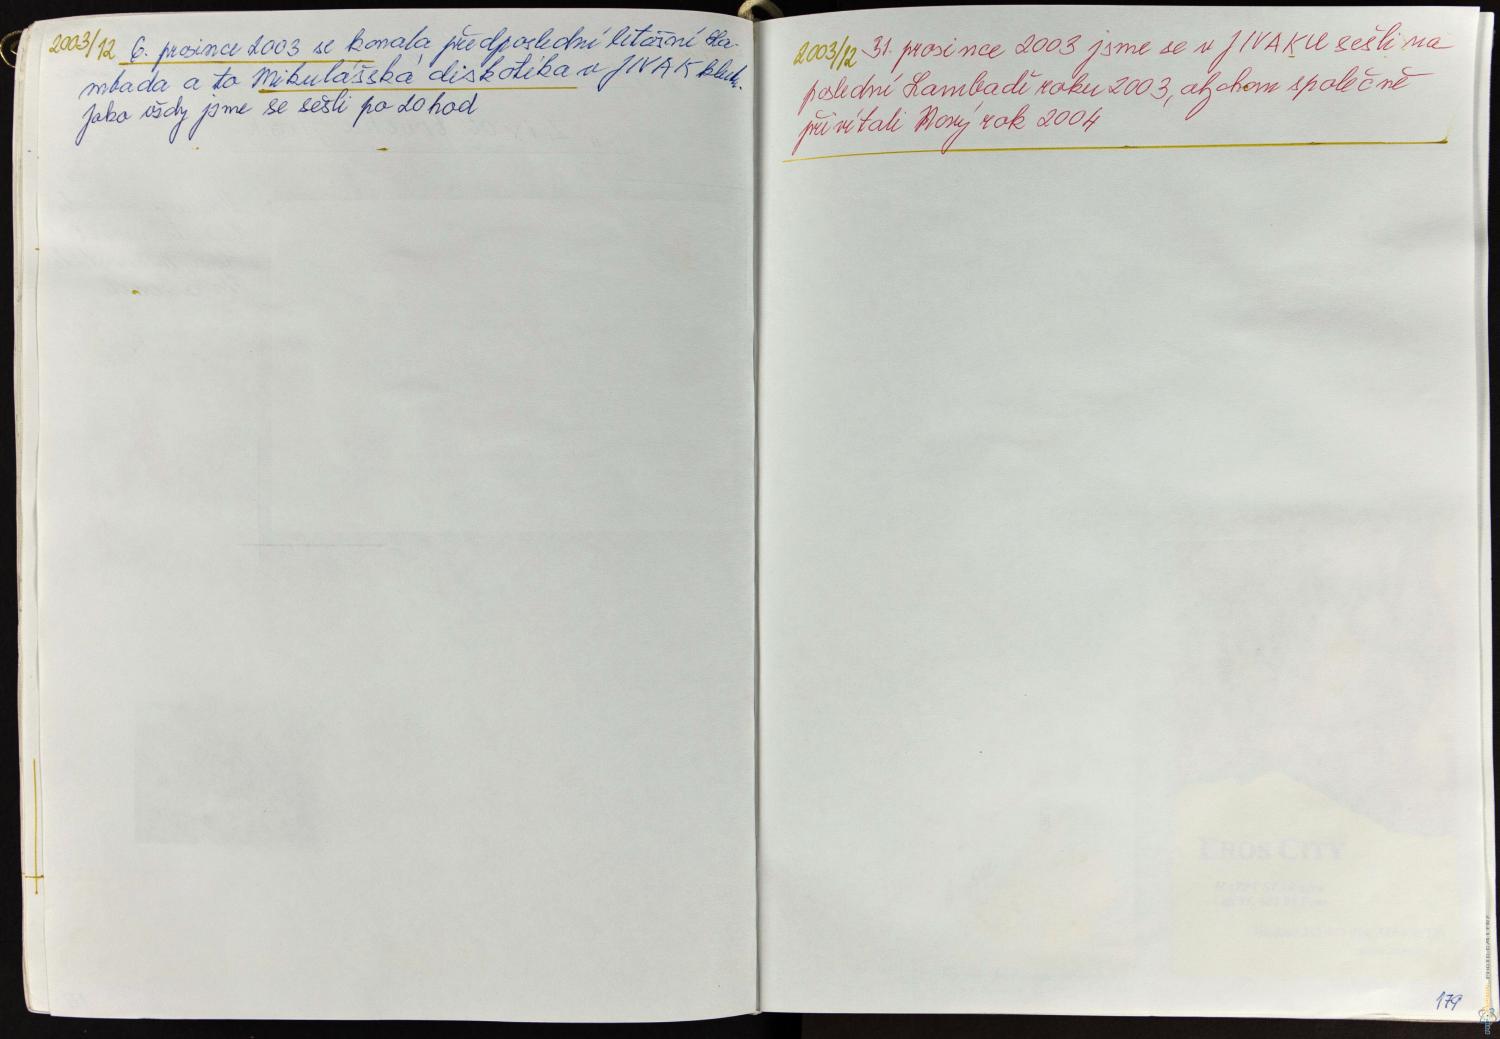 2003/12 6. prosince 2003 se konala předposlední letošní La-
mbada a to Mikulášská diskotéka v JIVAK klub.
Jako vždy jsme se sešli po 20 hod
2003/12 31. prosince 2003 jsme se v JIVAKU sešli na
poslední Lambadě roku 2003, abychom společně
přivítali Nový rok 2004
EROS CITY
179